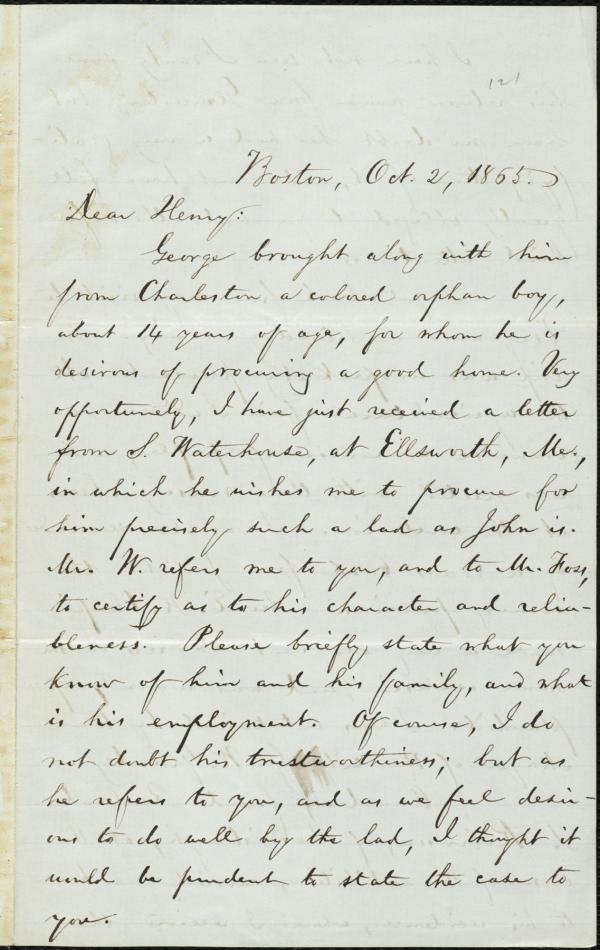 121
Boston, Oct. 2, 1865.
Dear Henry:
George brought along with him
from Charleston a colored orphan boy,
about 14 years of age, for whom he is
desirous of procuring a good home. Very
opportunely, I have just received a letter
from S. Waterhouse, at Ellsworth, Me.,
in which he wishes me to procure for
him precisely such a lad as John is.
Mr. W. refers me to you, and to Mr. Foss,
to certify as to his character and relia-
bleness. Please briefly state what you
know of him and his family, and what
is his employment. Of course, I do
not doubt his trustworthiness; but as
he refers to you, and as we feel desir-
ous to do well by the lad, I thought it
would be prudent to state the case to
you.